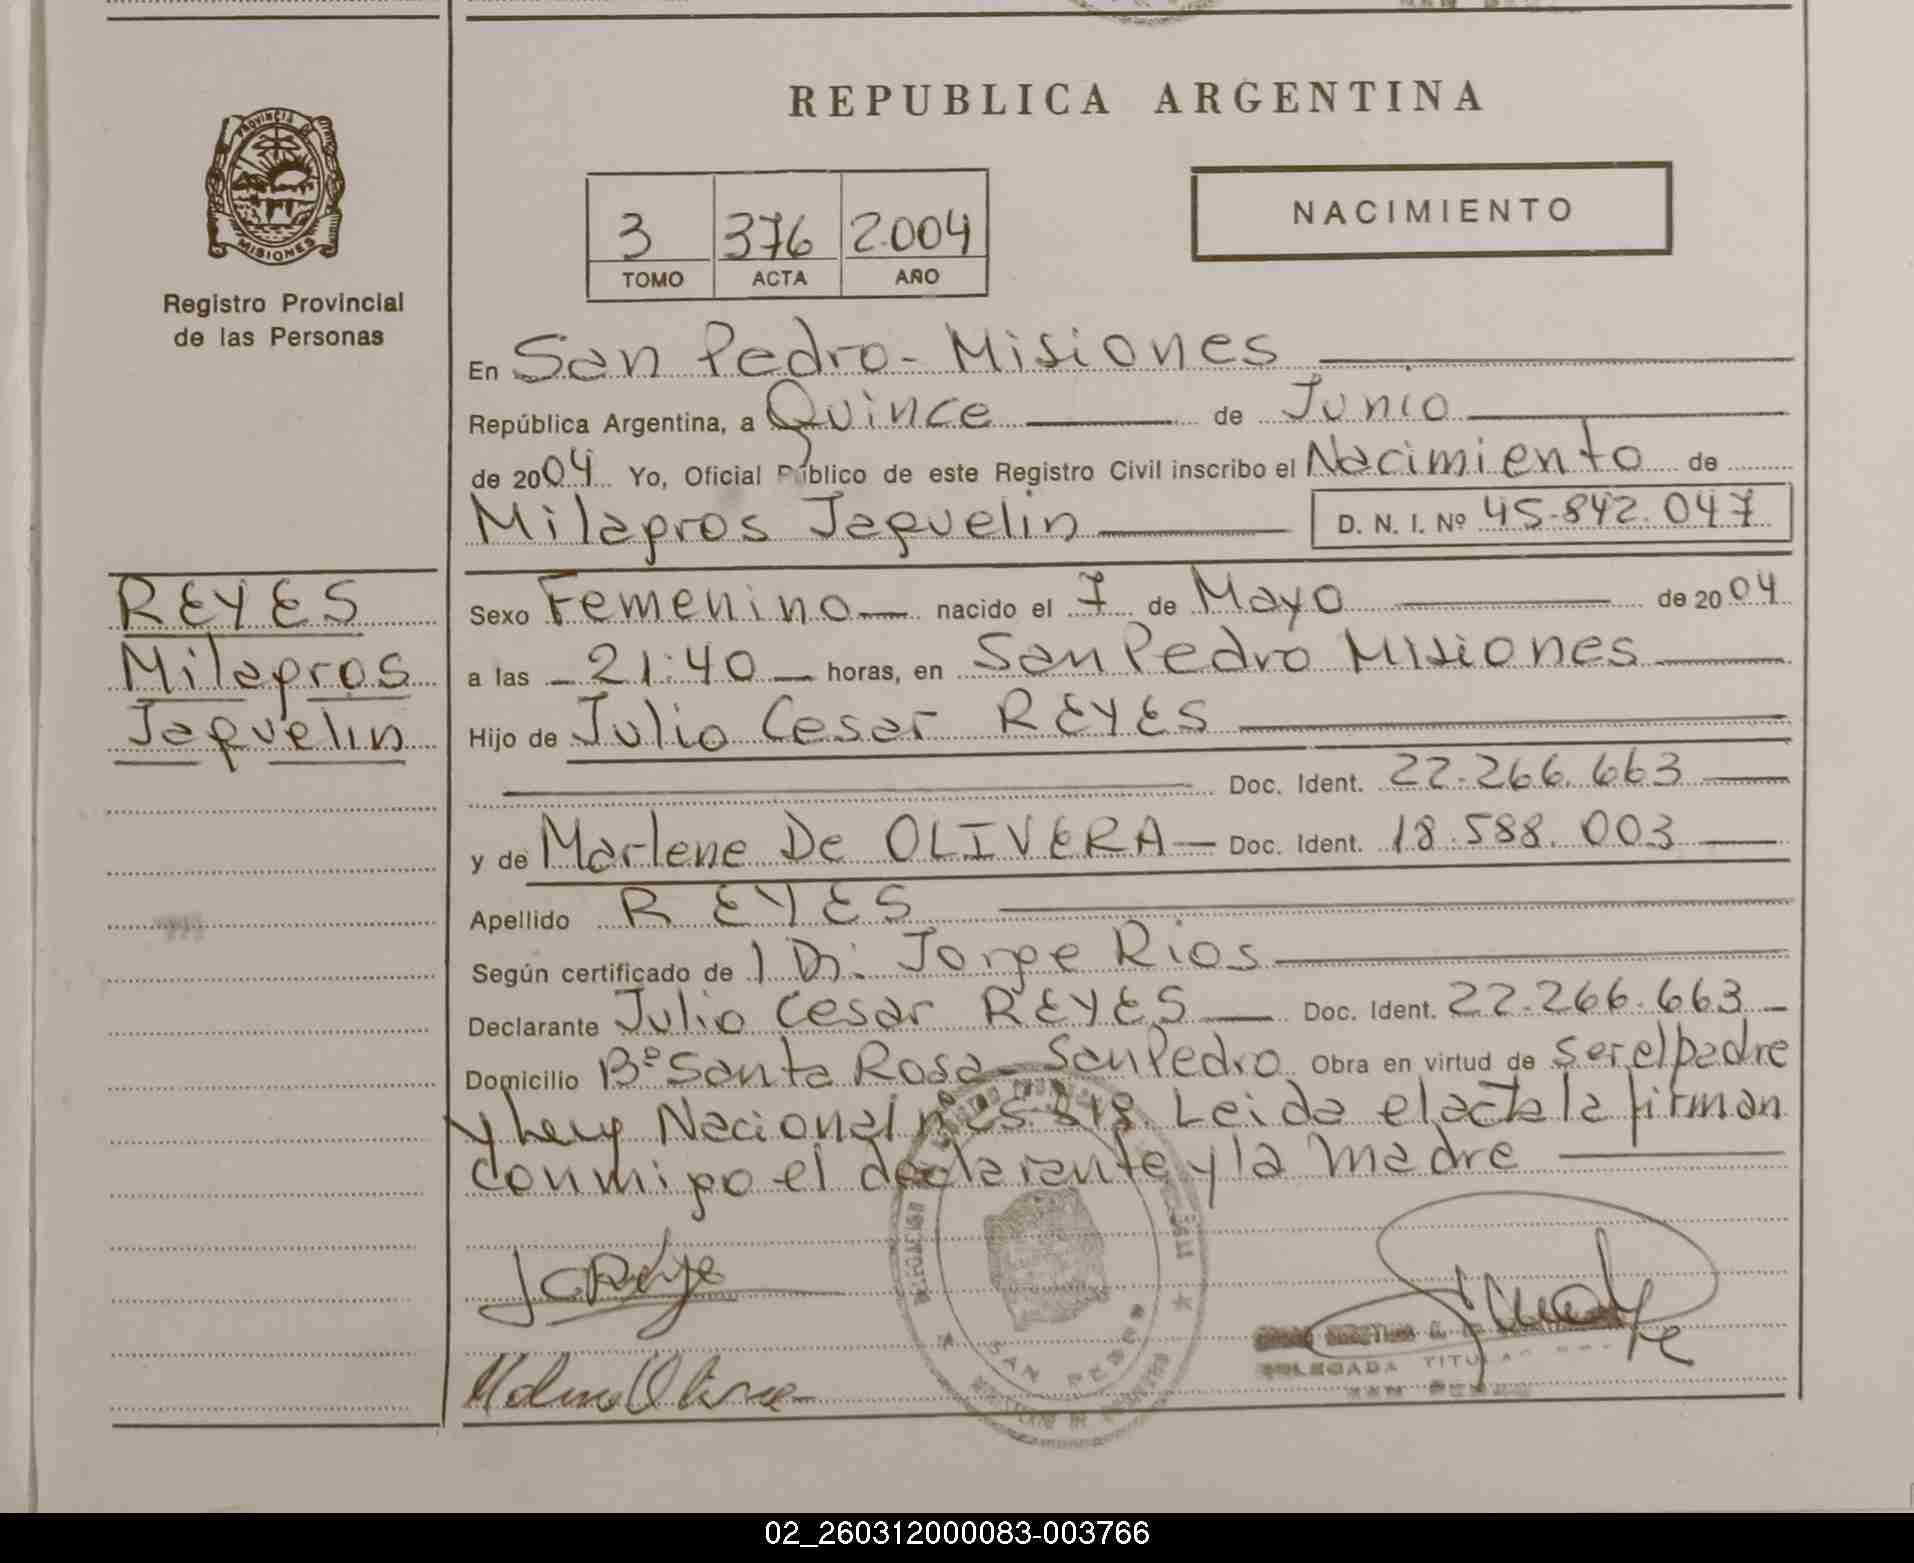 REPUBLICA ARGENTINA
PROVINCIA DE
MISIONES
Registro Provincial
de las Personas
3 376 2.004
TOMO ACTA AÑO
NACIMIENTO
En San Pedro - Misiones
República Argentina, a Quince de Junio
de 2004 Yo, Oficial Público de este Registro Civil inscribo el Nacimiento de
Milagros Jaquelin D. N. I. Nº 45.842.047
REYES
Milagros
Jaquelin
Sexo Femenino nacido el 7 de Mayo de 2004
a las 21:40 horas, en San Pedro Misiones
Hijo de Julio Cesar REYES
Doc. Ident. 22.266.663
y de Marlene De OLIVERA Doc. Ident. 18.588.003
Apellido REYES
Según certificado de l Dr. Jorge Rios
Declarante Julio Cesar REYES Doc. Ident. 22.266.663
Domicilio Bº Santa Rosa - San Pedro Obra en virtud de ser el padre
y Ley Nacional Leida el acta la firman
conmigo el declarante y la madre
JCReyes
SAN PEDRO
DELEGADA TITULAR
SAN PEDRO
02_260312000083-003766